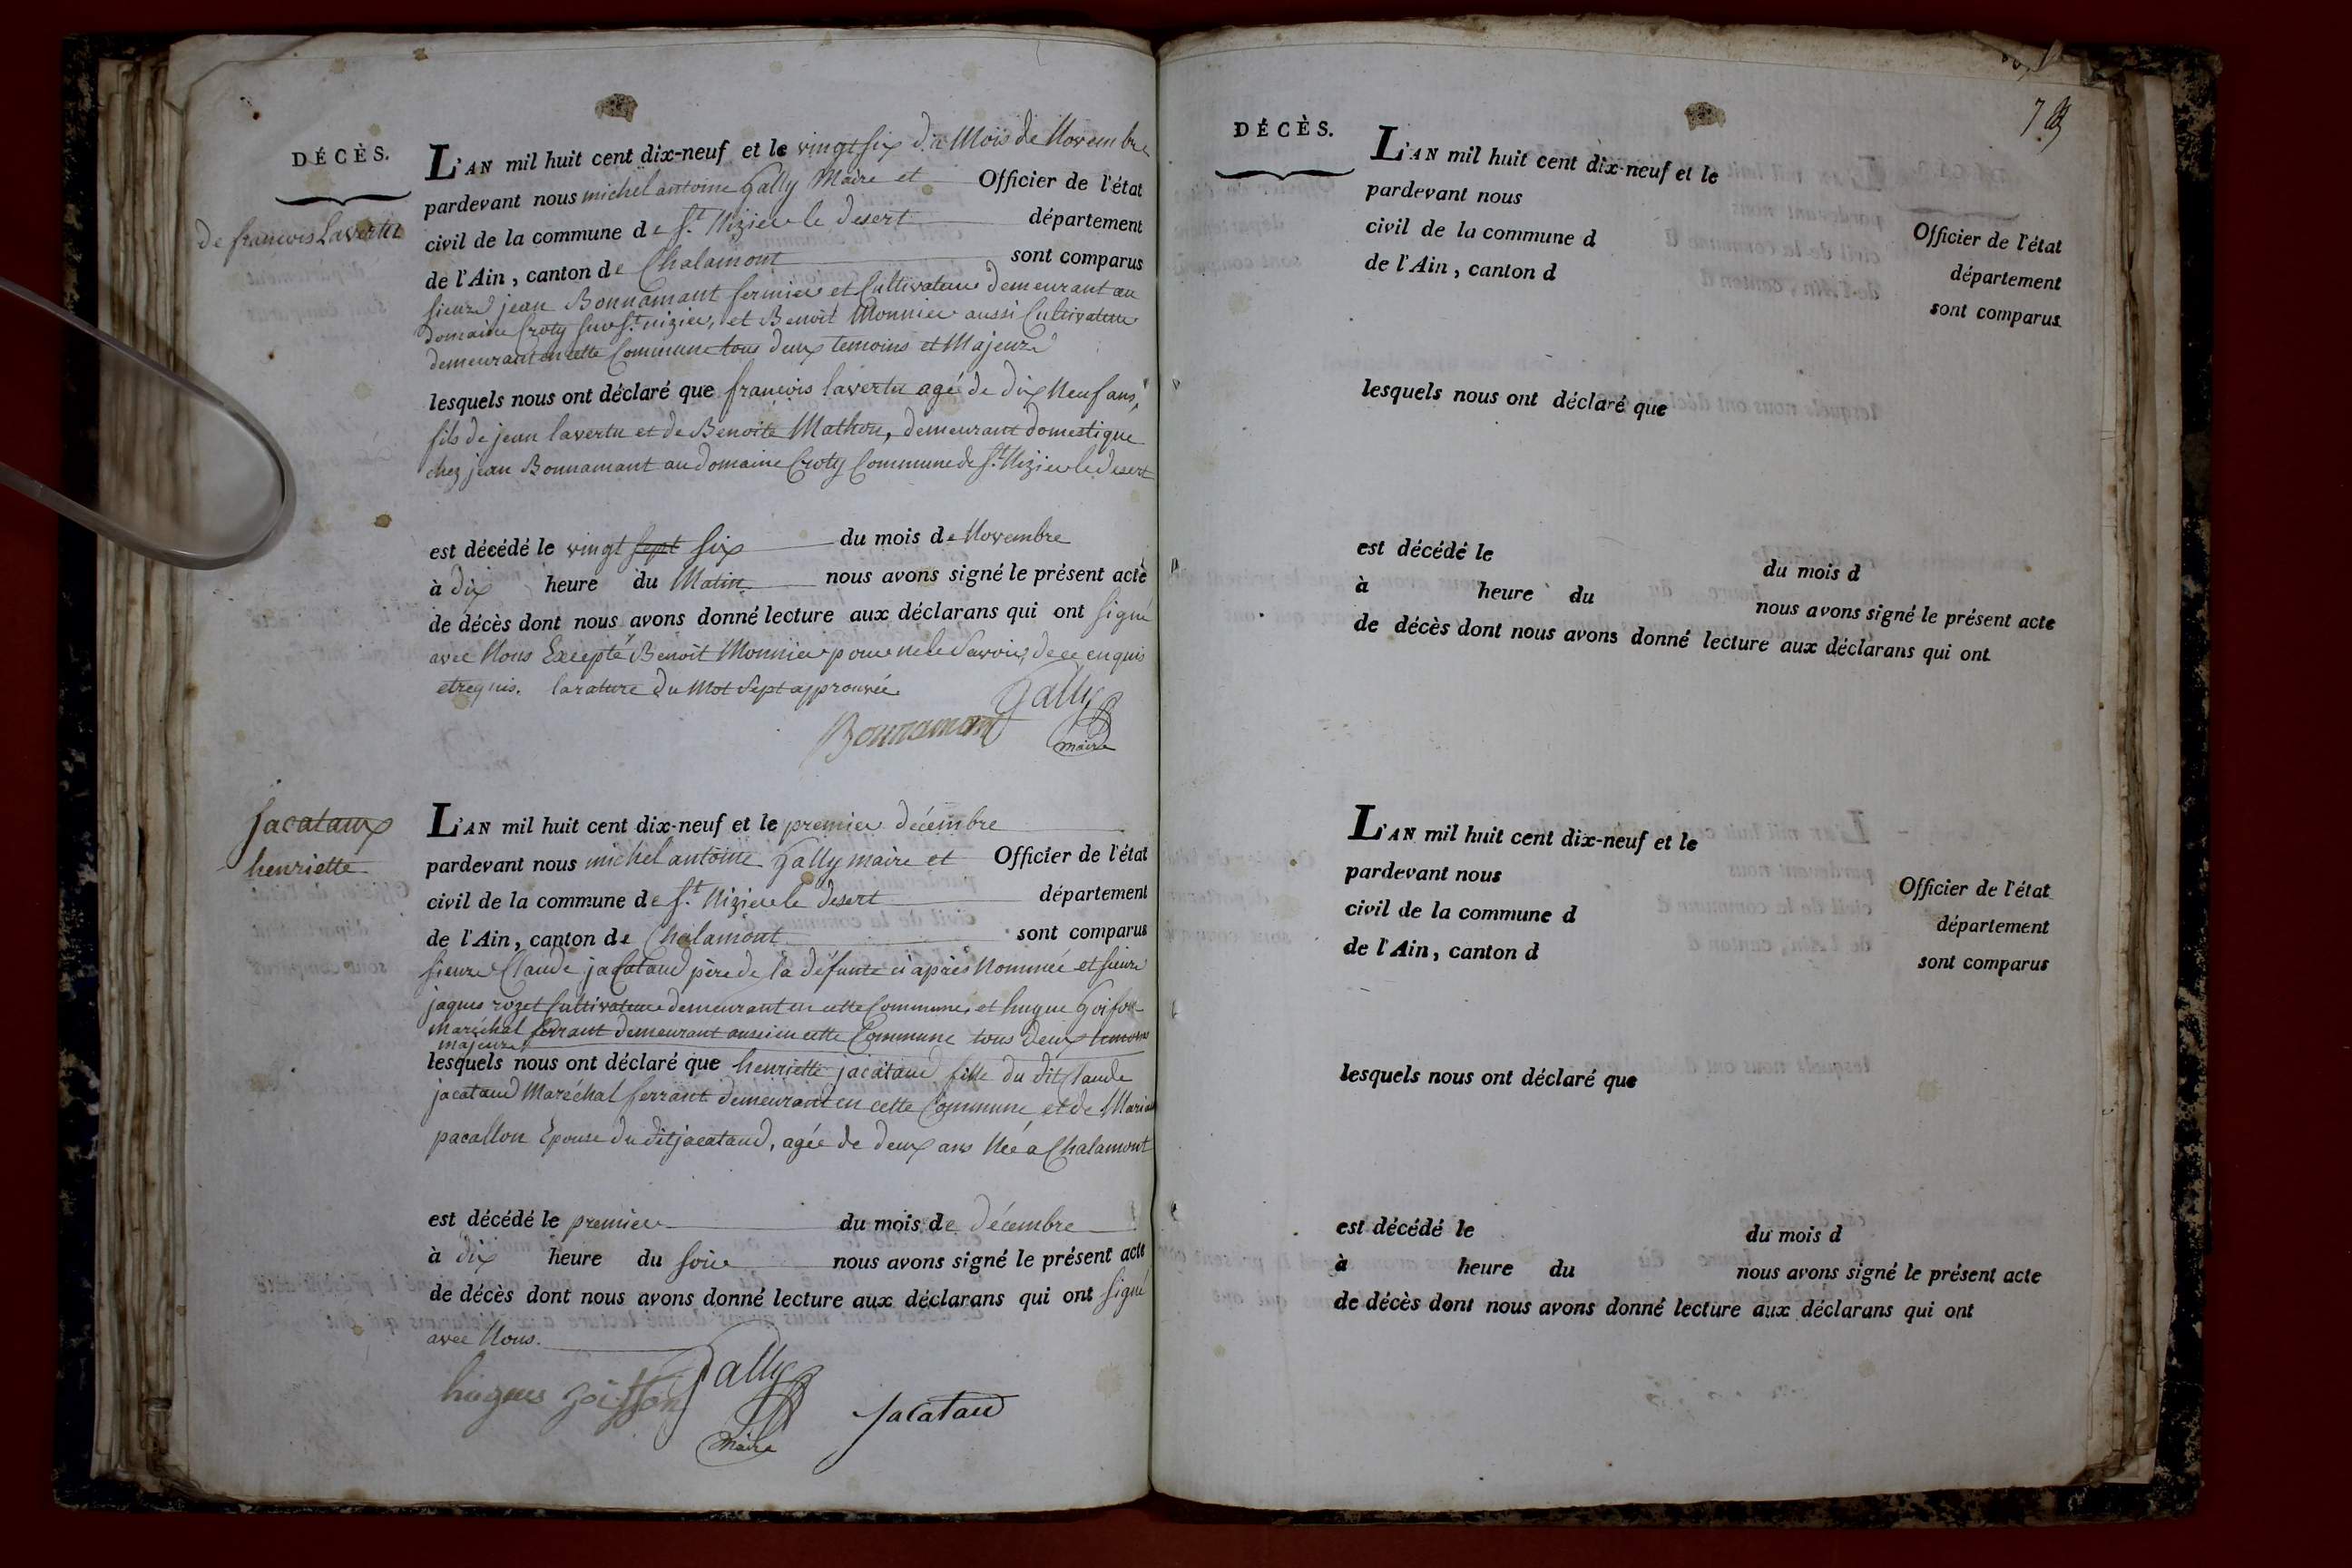 DÉCÈS.
de francois Lavertu
L'AN mil huit cent dix-neuf et le vingt six du Mois de Novembre
pardevant nous michel antoine Gally Maire et Officier de l'état
civil de la commune de St. Nizier le Desert département
de l'Ain, canton de Chalamont sont comparus
sieurs jean Bonnamant fermier et Cultivateur demeurant au
domaine Croty sur St. nizier, et Benoit Monnier aussi Cultivateur
demeurant en cette Commune tous deux temoins et Majeurs
lesquels nous ont déclaré que francois lavertu agé de dix Neuf ans,
fils de jean lavertu et de Benoite Mathon, demeurant domestique
chez jean Bonnamant au domaine Croty Commune de St. Nizier le desert
est décédé le vingt sept six du mois de Novembre
à dix heure du Matin nous avons signé le présent acte
de décès dont nous avons donné lecture aux déclarans qui ont signé
avec Nous Excepté Benoit Monnier pour ne le Savoir, de ce enquis
et requis. la rature du Mot Sept approuvée
Gally
Bonnamant
maire
jacataux
henriette
L'AN mil huit cent dix-neuf et le premier décembre
pardevant nous michel antoine Gally maire et Officier de l'état
civil de la commune de St. Nizier le Desert département
de l'Ain, canton de Chalamont sont comparus
sieurs Claude jacataud père de la défunte ci après Nommée et sieurs
jaques rozet Cultivateur demeurant en cette Commune, et hugue Goifon
maréchal ferrant demeurant aussi en cette Commune tous deux temoins
majeurs
lesquels nous ont déclaré que henriette jacataud fille du dit Claude
jacataud Maréchal ferrant demeurant en cette Commune et de Maria
pacallon Epouse du dit jacataud, agée de deux ans Née a Chalamont
est décédé le premier du mois de décembre
à dix heure du soir nous avons signé le présent acte
de décès dont nous avons donné lecture aux déclarans qui ont signé
avec Nous.
Gally
hugues goiffon
jacataud
maire
DÉCÈS.
L'AN mil huit cent dix-neuf et le
pardevant nous Officier de l'état
civil de la commune d département
de l'Ain, canton d sont comparus
lesquels nous ont déclaré que
est décédé le du mois d
à heure du nous avons signé le présent acte
de décès dont nous avons donné lecture aux déclarans qui ont
L'AN mil huit cent dix-neuf et le
pardevant nous Officier de l'état
civil de la commune d département
de l'Ain, canton d sont comparus
lesquels nous ont déclaré que
est décédé le du mois d
à heure du nous avons signé le présent acte
de décès dont nous avons donné lecture aux déclarans qui ont